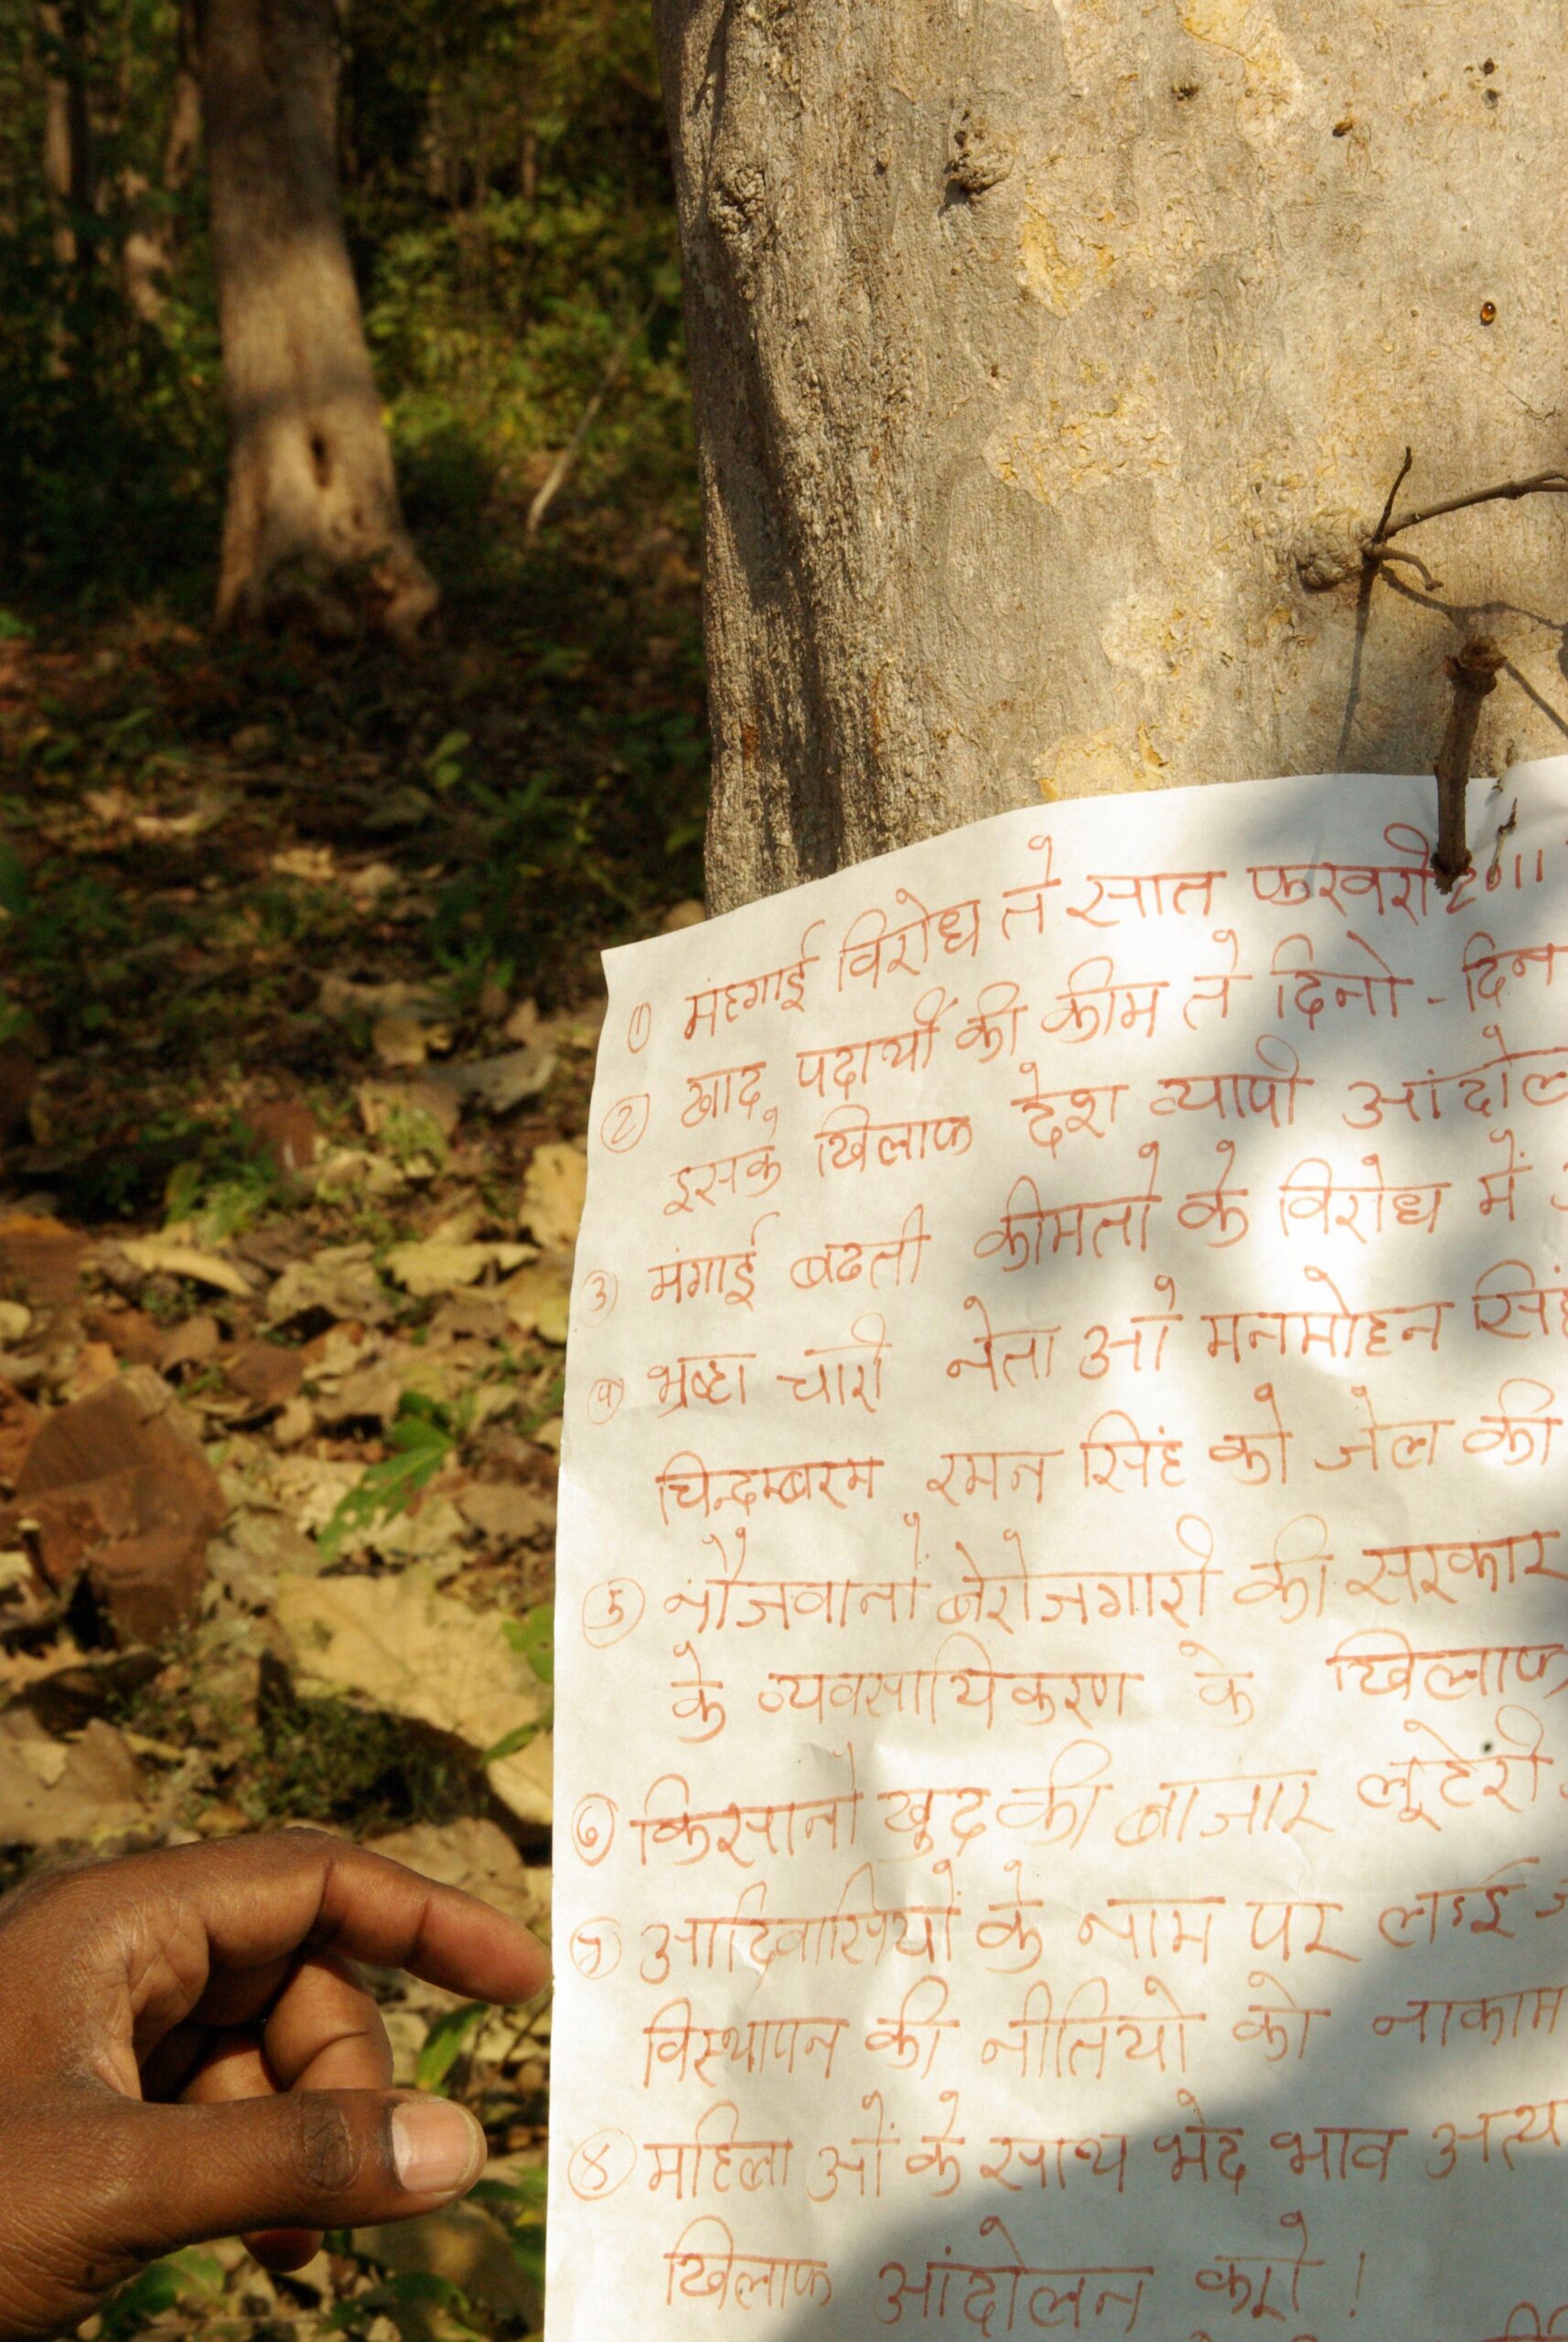 ① मंहगाई विरोध ते सात फरवरी 2011
② खाद्य पदार्थो की कीम ते दिनो - दिन
इसके खिलाफ देश व्यापी आंदोल
③ मंगाई बढती कीमतो के विरोध में
④ भ्रष्टा चारी नेता ओ मनमोहन सिंह
चिन्दम्बरम रमन सिंह को जेल की
⑤ नौजवानों बेरोजगारी की सरकार
के व्यवसायिकरण के खिलाफ
⑥ किसानो खुद की बाजार लूटेरी
आदिवासियों के नाम पर लाई
विस्थापन की नीतियो को नाकाम
⑧ महिला ओं के साथ भेद भाव अत्य
खिलाफ आंदोलन करो !